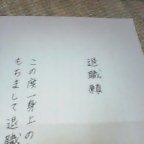 退職願
この度一身上の
もちまして退職